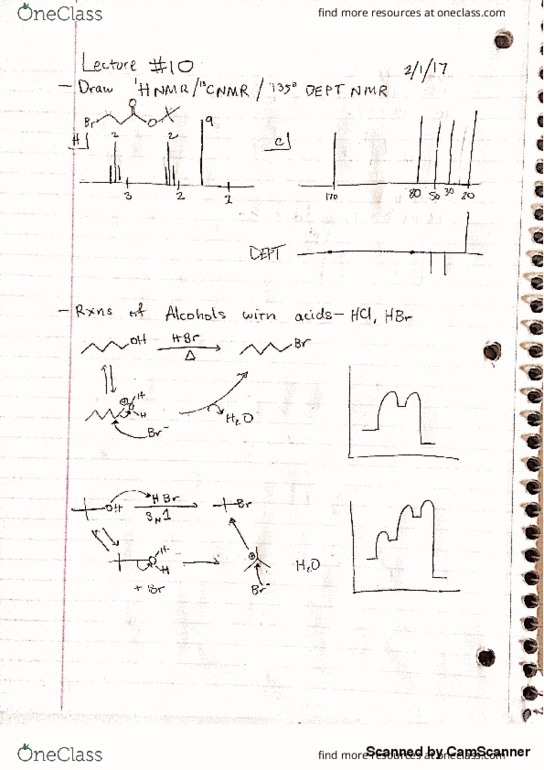 OneClass
find more resources at oneclass.com
Lecture #10
2/1/17
- Draw ¹H NMR/¹³C NMR / 135° DEPT NMR
Br O O
H
2 2 9
3 2 1
C
170 80 50 30 20
DEPT
- Rxns of Alcohols with acids - HCl, HBr
OH HBr Δ Br
⊕ H H
Br⁻
H₂O
OH HBr Br
SN1
H H
+ Br
⊕
Br⁻
H₂O
OneClass
find more resources at oneclass.com
Scanned by CamScanner